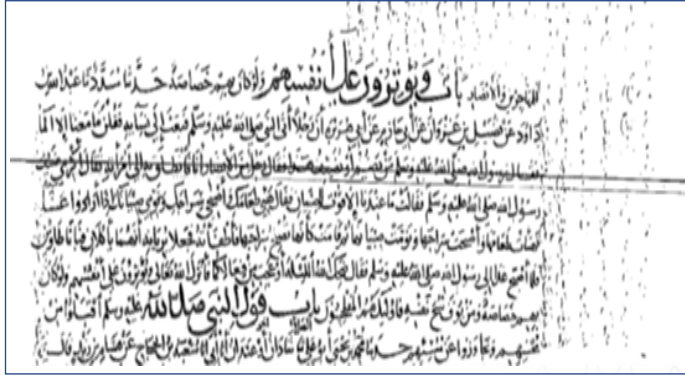 المهاجرين والأنصار باب ويؤثرون على أنفسهم ولو كان بهم خصاصة حدثنا مسدد نا عبد الله بن
داود عن فضيل بن غزوان عن أبي حازم عن أبي هريرة أن رجلا أتى النبي صلى الله عليه وسلم فبعث إلى نسائه فقلن ما معنا إلا الماء
فقال رسول الله صلى الله عليه وسلم من يضم أو يضيف هذا فقال رجل من الأنصار أنا فانطلق به إلى امرأته فقال أكرمي ضيف
رسول الله صلى الله عليه وسلم فقالت ما عندنا إلا قوت صبيان فقال هيئي طعامك وأصبحي سراجك ونومي صبيانك إذا أرادوا عشاء
فهيأت طعامها وأصبحت سراجها ونومت صبيانها ثم قامت كأنها تصلح سراجها فأطفأته فجعلا يريانه أنهما يأكلان فباتا طاويين
فلما أصبح غدا إلى رسول الله صلى الله عليه وسلم فقال ضحك الله الليلة أو عجب من فعالكما فأنزل الله تعالى ويؤثرون على أنفسهم ولو كان
بهم خصاصة ومن يوق شح نفسه فأولئك هم المفلحون باب قول النبي صلى الله عليه وسلم اقبلوا من
محسنهم وتجاوزوا عن مسيئهم حدثنا محمد بن يحيى أبو علي نا شاذان أخو عبدان نا أبي أنا شعبة بن الحجاج عن هشام بن زيد قال